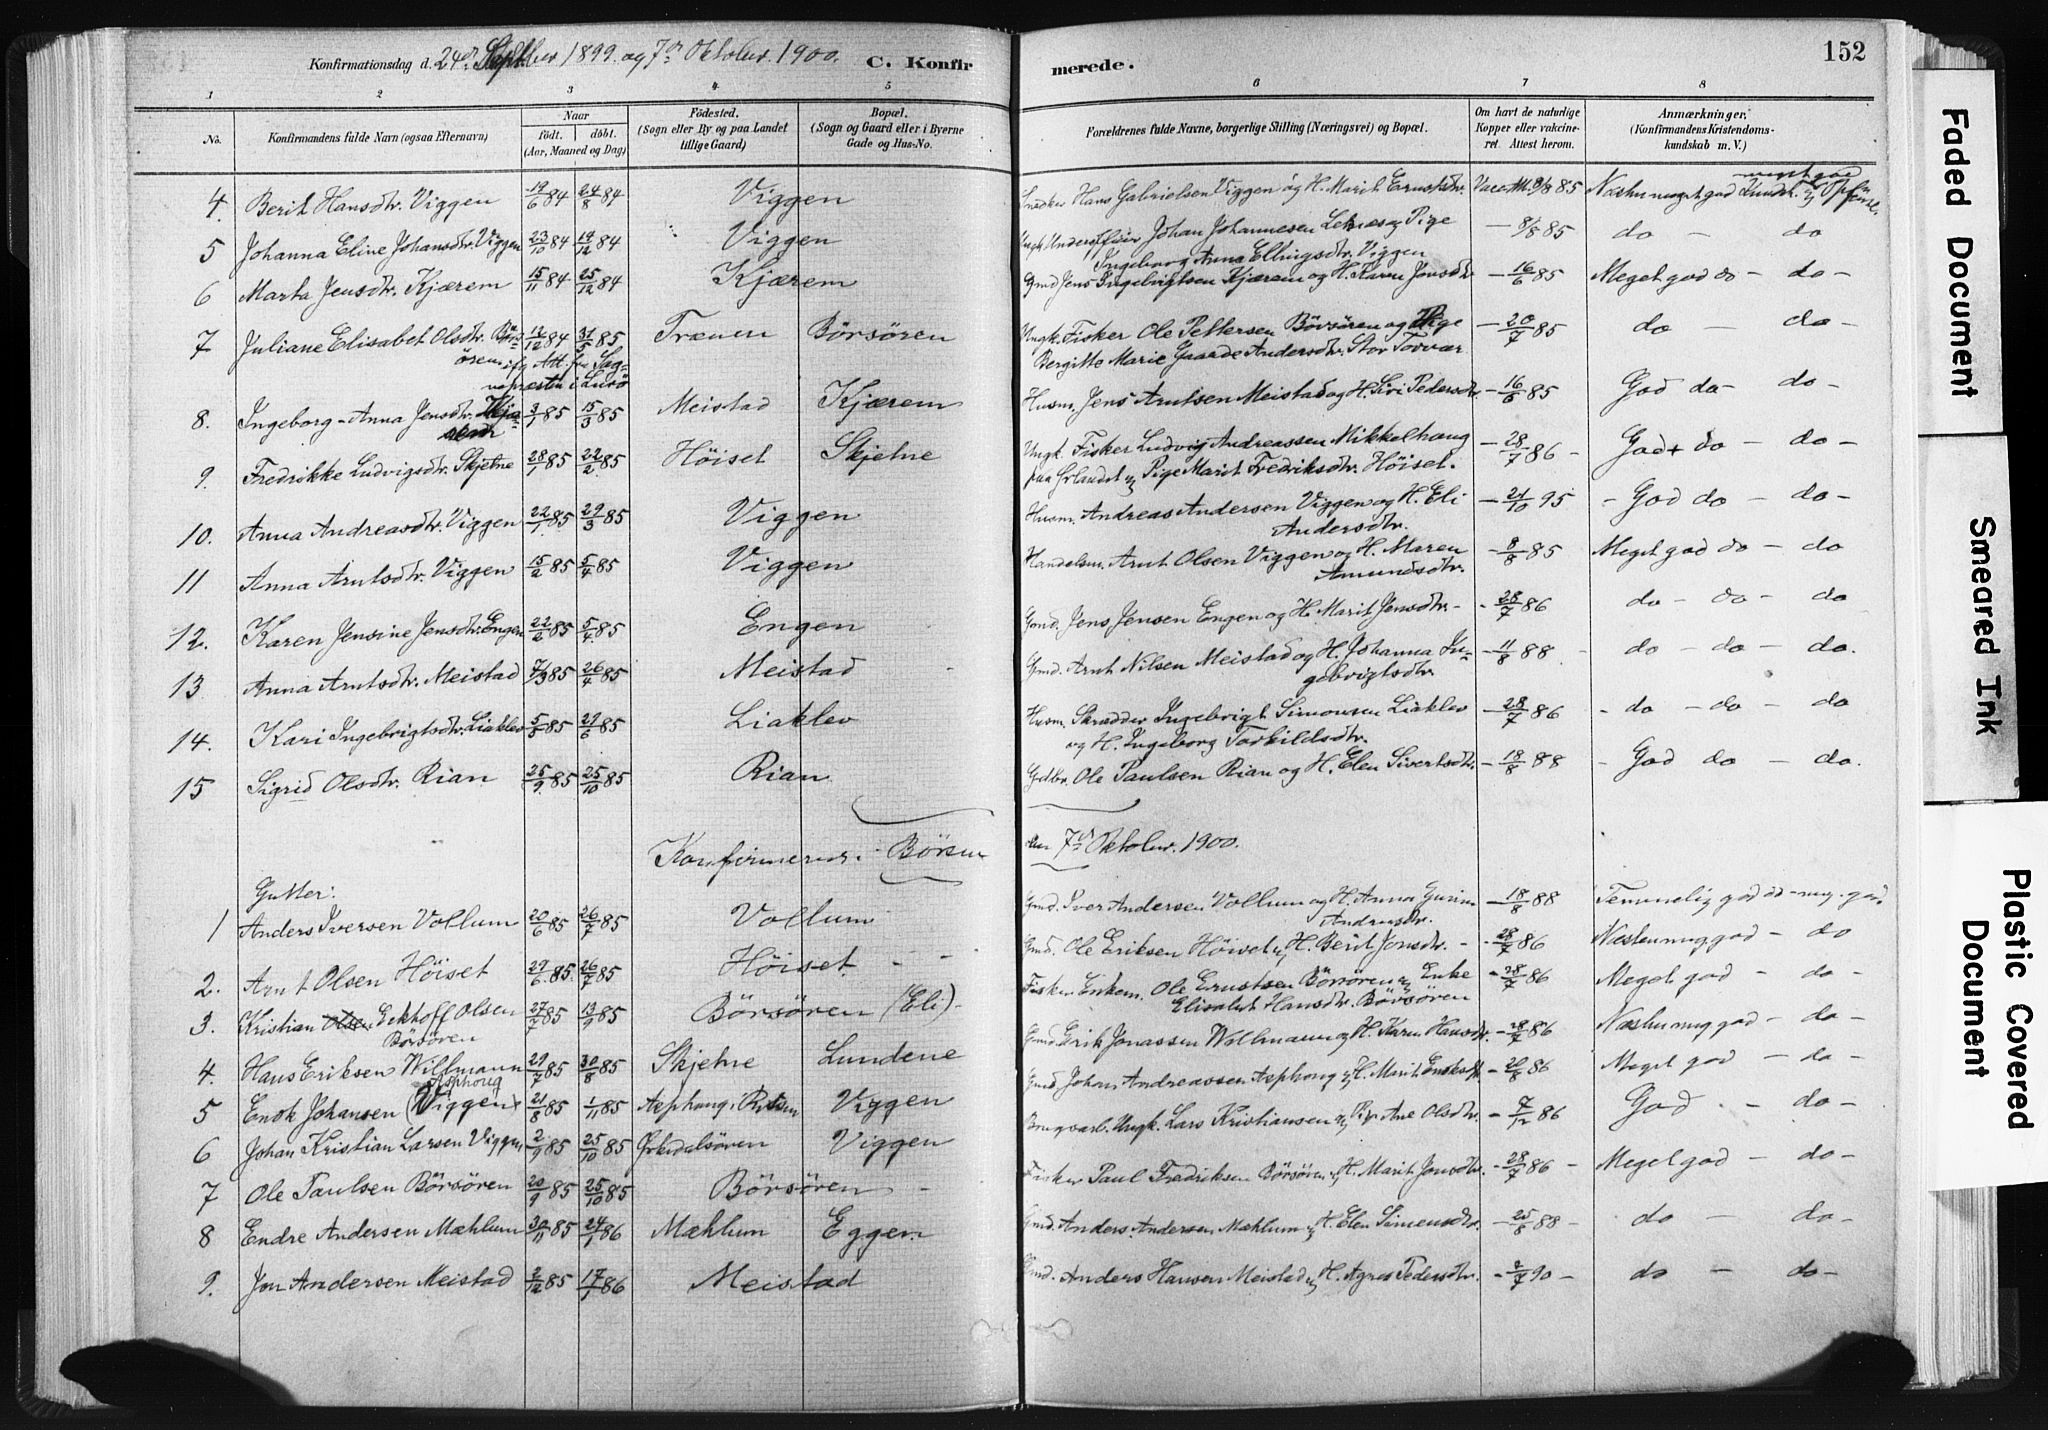 Konfirmationsdag d. 24de Septber 1899 og 7de Oktober 1900. C. Konfirmerede. 152
1 2 3 4 5 6 7 8
No. Konfirmandens fulde Navn (ogsaa Efternavn) Naar født. døbt. (Aar, Maaned og Dag) Fødested. (Sogn eller By og paa Landet tillige Gaard) Bopæl. (Sogn og Gaard eller i Byerne Gade og Hus-No. Forældrenes fulde Navne, borgerlige Stilling (Næringsvei) og Bopæl. Om havt de naturlige Kopper eller vakcineret. Attest herom. Anmærkninger. (Konfirmandens Kristendomskundskab m. V.)
4. Berit Hansdtr. Viggen 19/6 84 24/8 84 Viggen Snedker Hans Gabrielsen Viggen og H. Marit Ernstdtr. Vacc. Att. 8/8 85 Næsten meget god Kundsk. meget god
5 Johanna Eline Johansdtr. Viggen 23/10 84 19/12 84 Viggen Ungk. Underoffiser Johan Johannesen Leknes og Pige – 8/8 85 do – do
Ingeborg Anna Ellingsdtr. Viggen
6 Marta Jensdtr. Kjærem 15/11 84 25/12 84 Kjærem Gmd Jens Ingebrigtsen Kjærem og H. Karen Jonsdtr – 16/6 85 Meget god do – do –
7 Juliane Elisabet Olsdtr. Børsören 12/12 84 31/5 85 Trænen Börsören Ungk. Fisker Ole Pettersen Börsören og Pige – 20/7 85 do – do –
ifg. Att. fra Sognepræsten i Lurö Bergitte Marie Gaarde Andersdtr. Stor Torvær
8. Ingeborg-Anna Jensdtr. Kjærem 3/1 85 15/3 85 Meistad Kjærem Husm. Jens Arntsen Meistad og H. Siri Pedersdtr. – 16/6 85 God do – do –
9. Fredrikke Ludvigsdtr. Skjetne 28/1 85 22/2 85 Höiset Skjetne Ungk. Fisker Ludvig Andreassen Mikkelhaug – 28/7 86 – God + do – do –
paa Ørlandet og Pige Marit Fredriksdtr. Höiset.
10. Anna Andreasdtr. Viggen 22/1 85 29/3 85 Viggen Husm. Andreas Andersen Viggen og H. Eli – 21/10 95 – God do – do –
Andersdtr.
11 Anna Arntsdtr. Viggen 15/2 85 5/4 85 Viggen Handelsm. Arnt Olsen Viggen og H. Maren – 8/8 85 Meget god do – do
Amundsdtr.
12. Karen Jensine Jensdtr. Engen 22/2 85 5/4 85 Engen Gmd. Jens Jensen Engen og H. Marit Jensdtr. – 28/7 86 do – do – do
13 Anna Arntsdtr. Meistad 7/3 85 26/4 85 Meistad Gmd. Arnt Nilsen Meistad og H. Johanna In- – 11/8 88 – do – do – do.
gebrigtsdtr.
14. Kari Ingebrigtsdtr. Liaklev 5/5 85 29/6 85 Liaklev Husm. Skrædder Ingebrigt Simonsen Liaklev – 28/7 86 – do – do – do
og H. Ingeborg Torkildsdtr.
15 Sigrid Olsdtr. Rian 25/9 85 25/10 85 Rian Gdbr. Ole Paulsen Rian og H. Elen Sivertsdtr. – 18/8 88 – God do – do.
Konfirmerede i Börsen den 7de Oktober 1900.
Gutter:
1 Anders Iversen Vollum 20/6 85 26/7 85 Vollum Gmd. Iver Andersen Vollum og H. Anna Gurine – 18/8 88 Temmelig god do – meg. god
Andersdtr.
2. Arnt Olsen Höiset 29/6 85 26/7 85 Höiset Gmd. Ole Eriksen Höiset og H. Berit Jonsdtr. – 28/7 86 Næsten meg. god – do
3. Kristian Olsen Eckhoff Olsen 27/7 85 13/9 85 Börsören (Eli) Fisker Enkem. Ole Ernstsen Börsören og Enke – 28/7 86 Meget god – do –
Börsören Elisabet Hansdtr. Börsören
4. Hans Eriksen Willmann 29/7 85 30/8 85 Skjetne Lundene Gmd. Erik Jonassen Willmann og H. Karen Hansdtr. – 28/7 86 Næsten meg. god – do –
5 Enok Johansen (Viggen) Asphoug 21/8 85 1/11 85 Asphoug i Rissen Viggen Gmd. Johan Andreassen Asphoug og H. Marit – 20/8 86 Meget god – do –
6 Johan Kristian Larsen Viggen 2/9 85 25/10 85 Orkedalsören Viggen Brugsarb. Ungk. Lars Kristiansen og Pige Ane Olsdtr. – 7/12 86 God – do –
7 Ole Paulsen Börsören 20/9 85 25/10 85 Börsören Fisker Paul Fredriksen Börsören og H. Marit Jonsdtr. – 28/7 86 – Meget god – do –
8 Endre Andersen Mæhlum 30/11 85 24/1 86 Mæhlum Eggen Gmd. Anders Andersen Mæhlum og H. Elen Simensdtr. – 25/8 88 – do – do –
9. Jon Andersen Meistad 2/12 85 17/1 86 Meistad Gmd. Anders Hansen Meistad og H. Agnes Pedersdtr. – 2/7 90 – do – do –
Faded Document
Smeared Ink
Plastic Covered Document